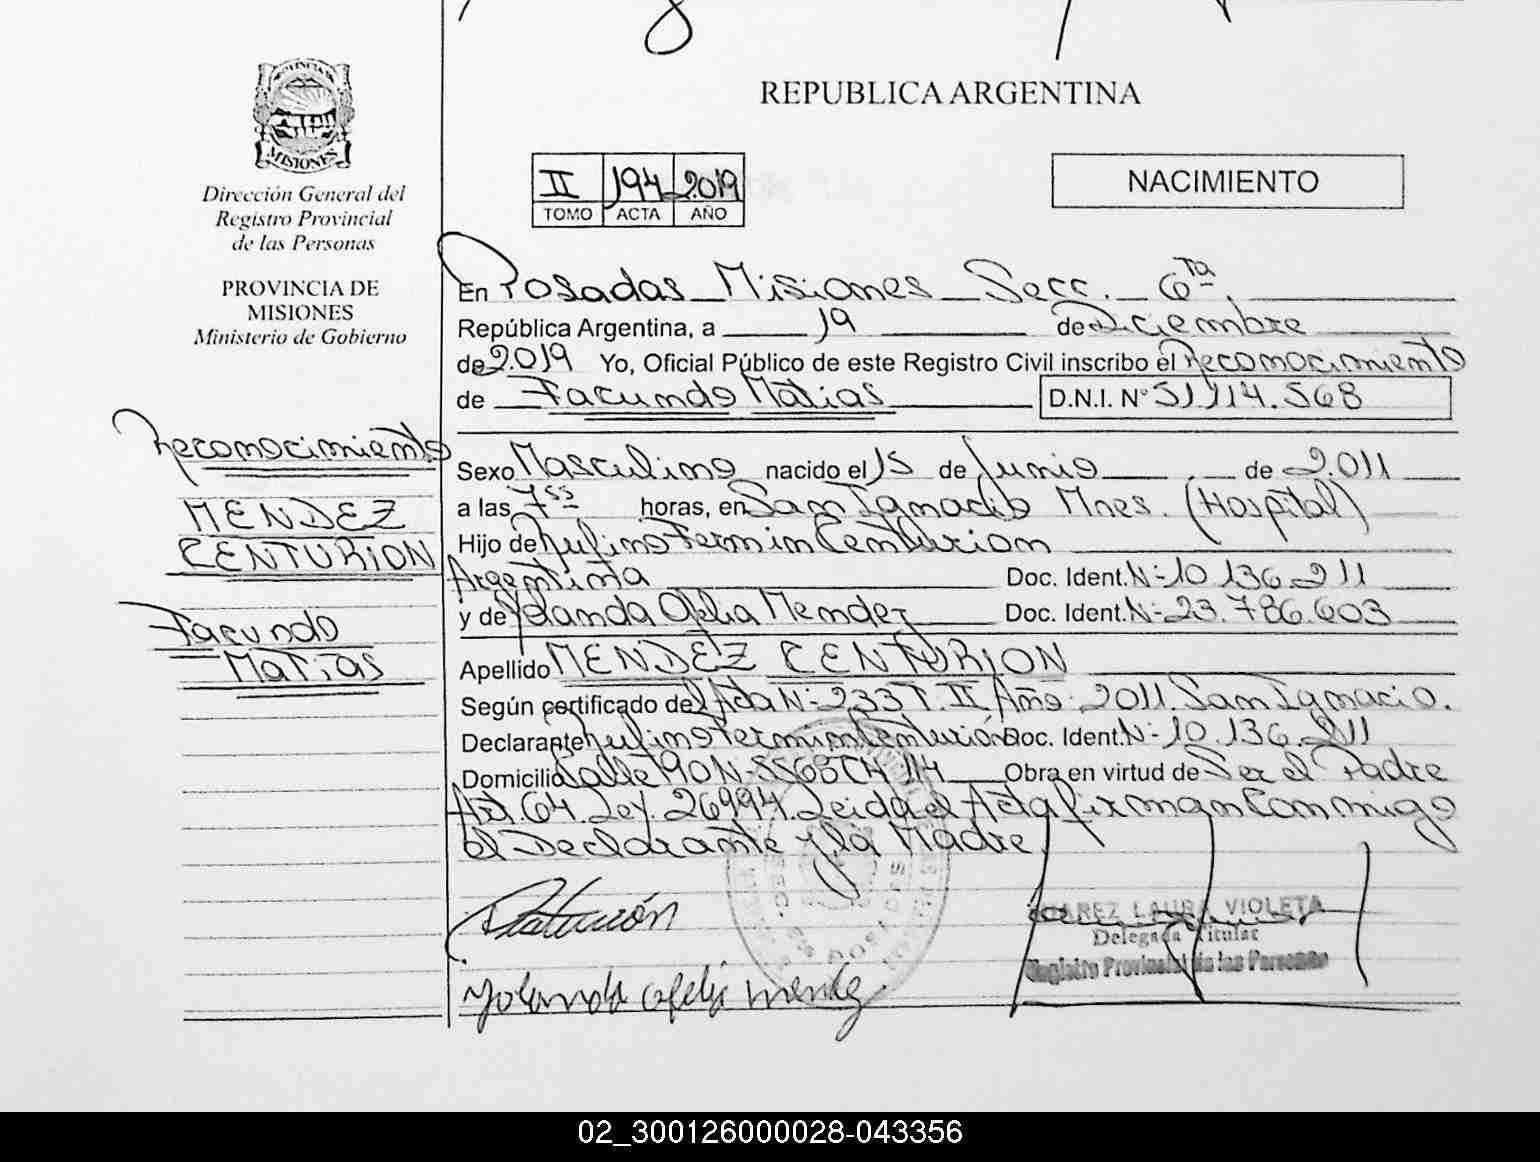 REPUBLICA ARGENTINA
PROVINCIA DE
MISIONES
Dirección General del
Registro Provincial
de las Personas
PROVINCIA DE
MISIONES
Ministerio de Gobierno
II 194 2.019
TOMO ACTA AÑO
NACIMIENTO
Reconocimiento
MENDEZ
CENTURION
Facundo
Matias
En Posadas Misiones Secc. 6ta
República Argentina, a 19 de Diciembre
de 2.019 Yo, Oficial Público de este Registro Civil inscribo el Reconocimiento
de Facundo Matias D.N.I. N° 51.114.568
Sexo Masculino nacido el 15 de Junio de 2.011
a las 7 55 horas, en San Ignacio Mnes. (Hospital)
Hijo de Rufino Fermin Centurion
Argentina Doc. Ident. N- 10.136.211
y de Yolanda Ofelia Mendez Doc. Ident. N- 23.786.603
Apellido MENDEZ CENTURION
Según certificado del Acta N- 233 T. II Año 2011. San Ignacio.
Declarante Rufino Fermin Centurión Doc. Ident. N- 10.136.211
Domicilio Calle 190 N- 5568 CH 114 Obra en virtud de Ser el Padre
Art. 64 Ley 26994. Leida el Acta firman Conmigo
el Declarante y la Madre
Yolanda Ofelia Mendez
JUAREZ LAURA VIOLETA
Delegada Titular
Registro Provincial de las Personas
02_300126000028-043356